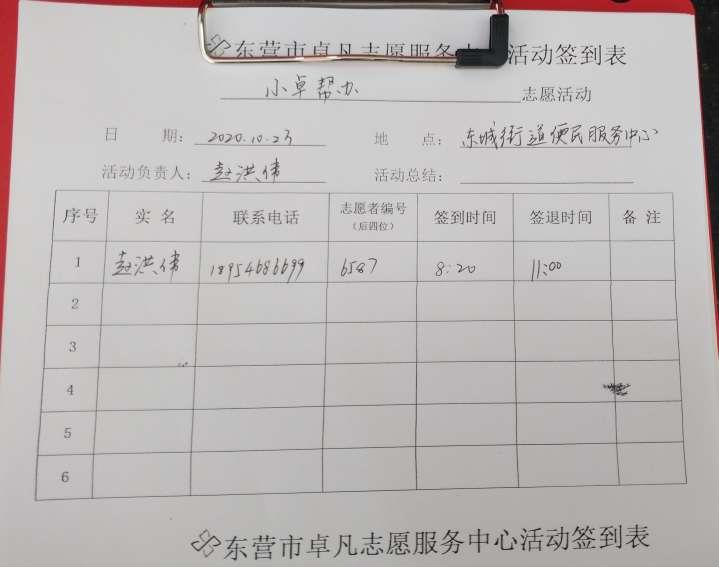 东营市卓凡志愿服务中心活动签到表
小卓帮办志愿活动
日 期: 2020.10.23 地 点: 东城街道便民服务中心
活动负责人: 赵洪伟 活动总结:
序号 实名 联系电话 志愿者编号 (后四位) 签到时间 签退时间 备注
1 赵洪伟 18954686699 6587 8:20 11:00
2
3
4
5
6
东营市卓凡志愿服务中心活动签到表